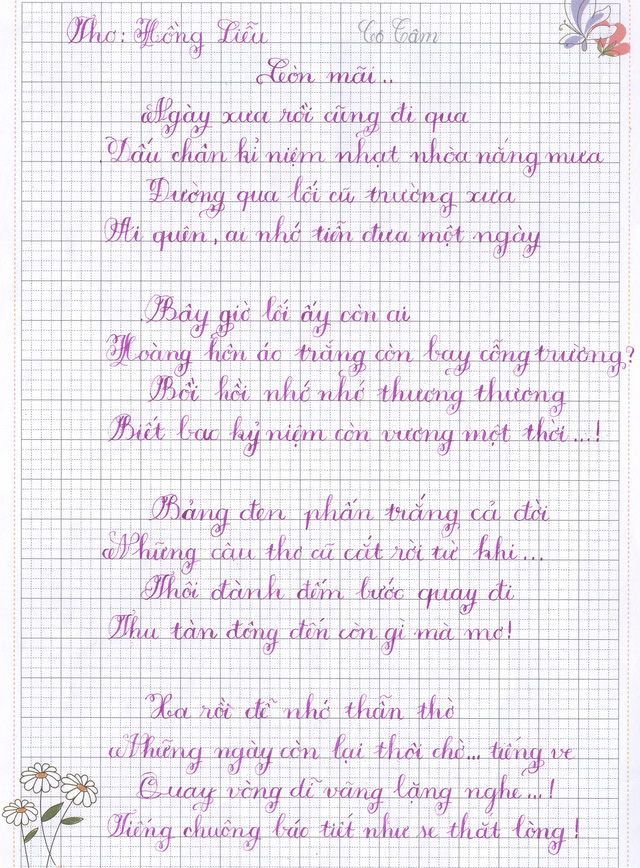 Thơ: Hồng Liễu Cô Tâm
Còn mãi..
Ngày xưa rồi cũng đi qua
Dấu chân kỉ niệm nhạt nhòa nắng mưa
Đường qua lối cũ trường xưa
Ai quên, ai nhớ tiễn đưa một ngày
Bây giờ lối ấy còn ai
Hoàng hôn áo trắng còn bay cổng trường?
Bồi hồi nhớ nhớ thương thương
Biết bao kỷ niệm còn vương một thời...!
Bảng đen phấn trắng cả đời
Những câu thơ cũ cất rời từ khi...
Thôi đành đếm bước quay đi
Thu tàn đông đến còn gì mà mơ!
Xa rồi để nhớ thẫn thờ
Những ngày còn lại thôi chờ... tiếng ve
Quay vòng dĩ vãng lặng nghe...!
Tiếng chuông báo tiết như se thắt lòng!